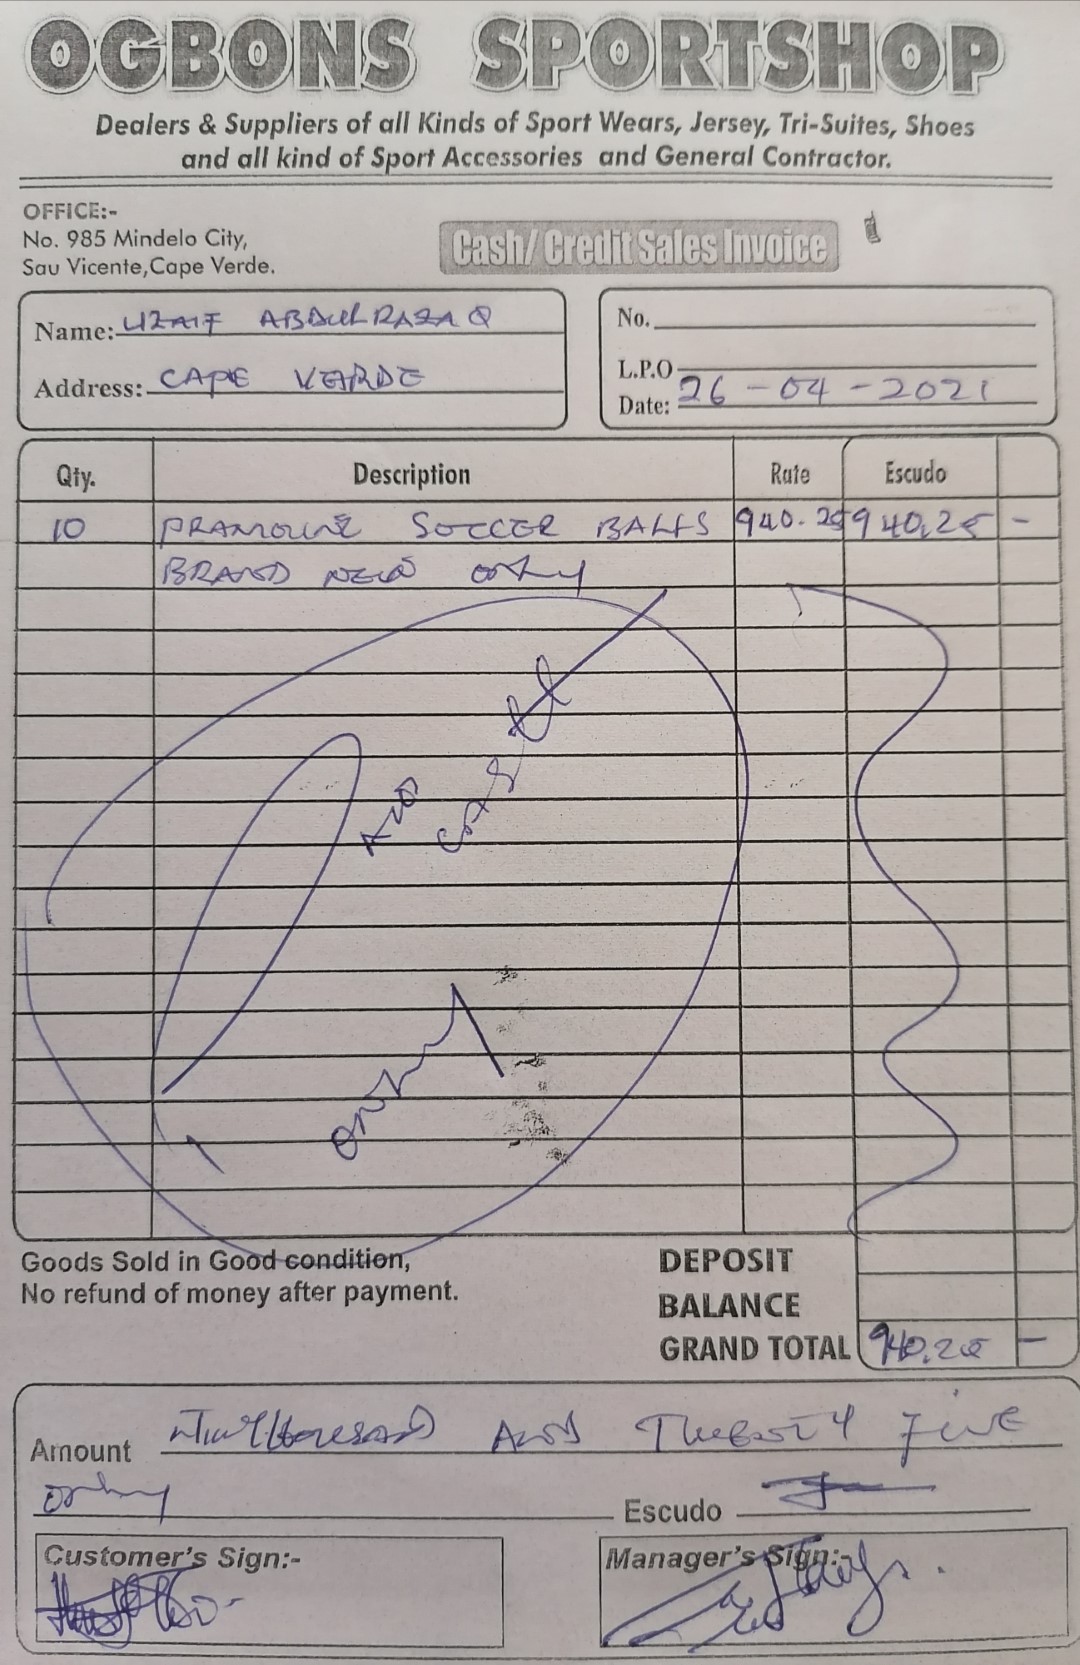 OGBONS SPORTSHOP
Dealers & Suppliers of all Kinds of Sport Wears, Jersey, Tri-Suites, Shoes
and all kind of Sport Accessories and General Contractor.
OFFICE:-
No. 985 Mindelo City,
Sau Vicente, Cape Verde.
Cash/ Credit Sales Invoice
Name: UZAIF ABDULRAZAQ
Address: CAPE VERDE
No.
L.P.O
Date: 26-04-2021
Qty. Description Rate Escudo
10 SOCCER BALLS 940.25 940.25 -
BRAND NEW only
only
Goods Sold in Good condition,
No refund of money after payment.
DEPOSIT
BALANCE
GRAND TOTAL 940.25 -
Amount AND TWENTY FIVE
only Escudo
Customer's Sign:-
Manager's Sign:-